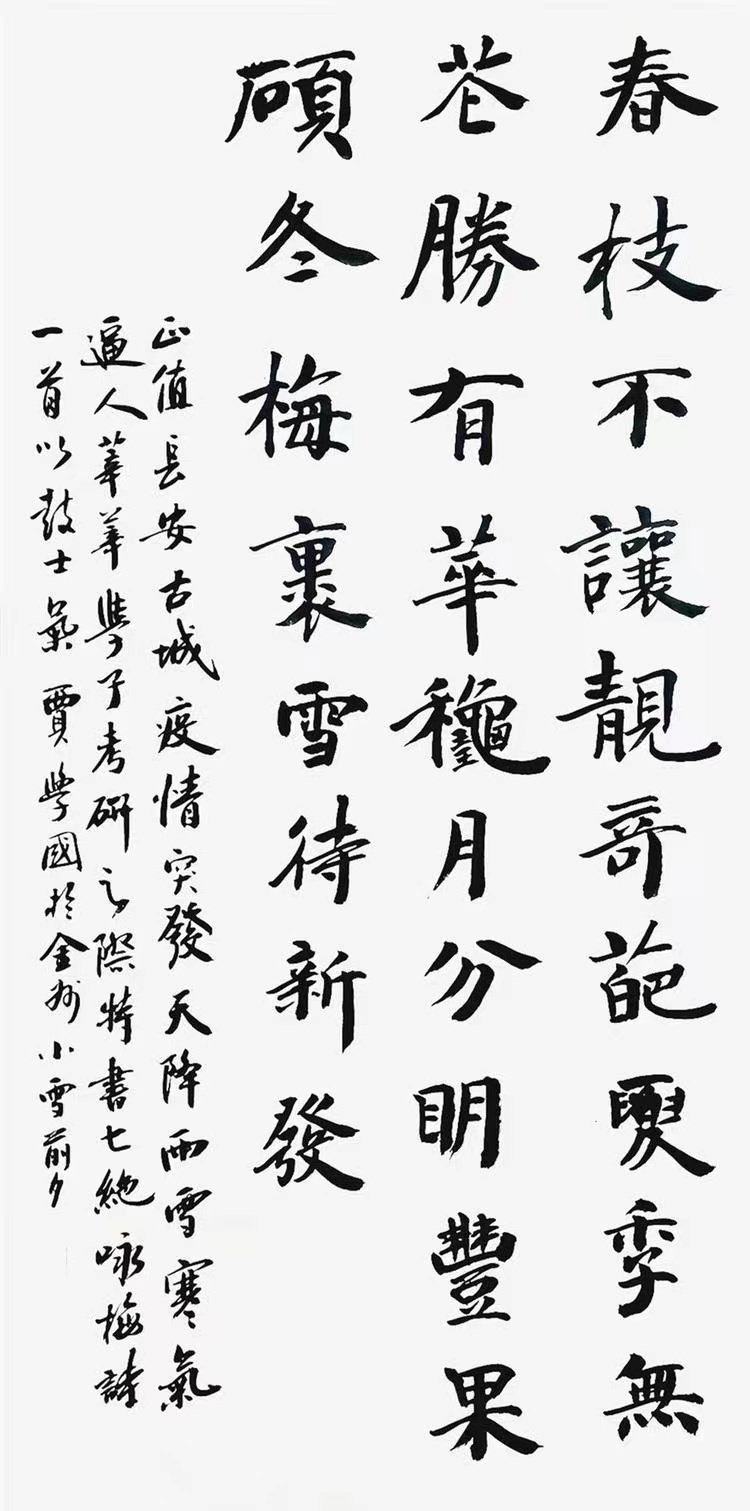 春枝不讓靚竒葩夏季無
花勝有華龝月分眀豐果
碩冬梅裏雪待新發
正值長安古城疫情突發天降雨雪寒氣
逼人莘莘學子考研之際特書七絕咏梅詩
一首以鼓士氣 賈學國於金州小雪前夕